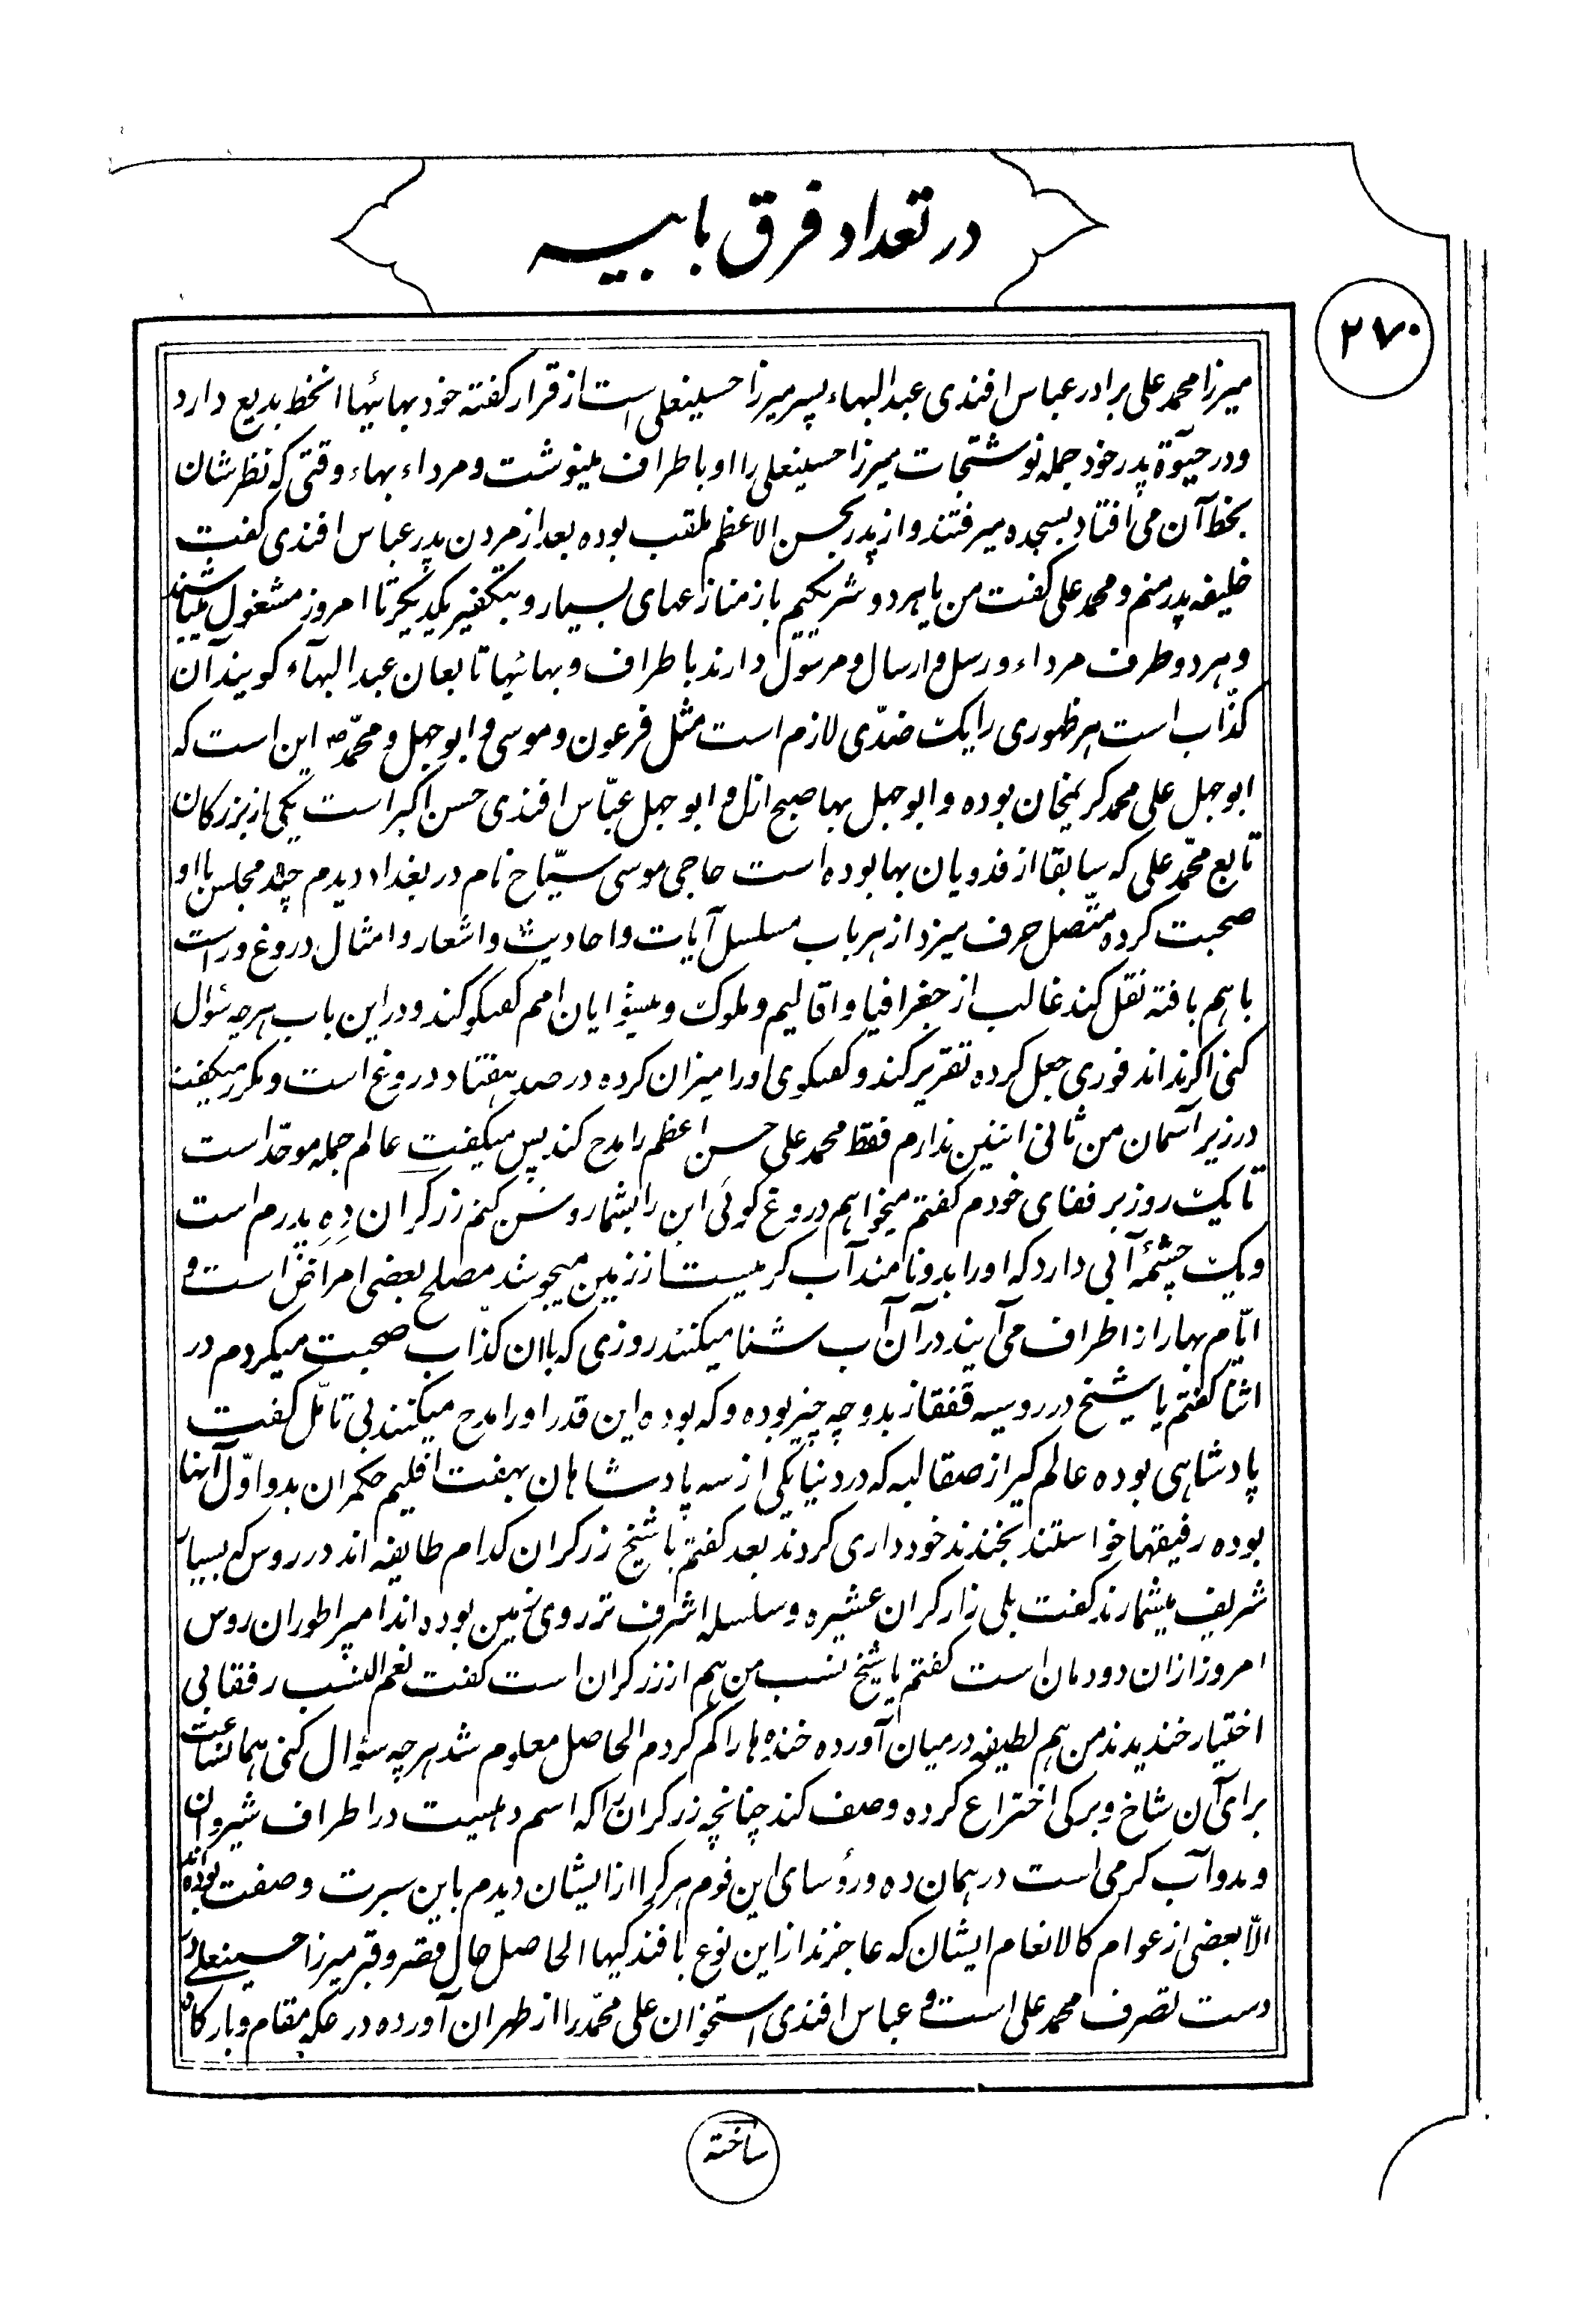 در تعداد فرق بابیه
۲۷۰
میرزا محمد علی برادر عباس افندی عبد البهاء پسر میرزا حسینعلی است از قرار گفته خود بهائیها انخط بدیع دارد
و در حیوة پدر خود جمله نوشتجات میرزا حسینعلی را او باطراف مینوشت و مرداء بهاء وقتی که نظرشان
بخط آن می افتاد بسجده میرفتند و از پدر بحسن الاعظم ملقب بوده بعد از مردن پدر عباس افندی گفت
خلیفه پدر منم و محمد علی گفت من یا هر دو شریکیم باز منازعهای بسیار و بتکفیر یکدیگر تا امروز مشغول میباشند
و هر دو طرف مرداء و رسل و ارسال و مرسول دارند باطراف و بهائیها تابعان عبد البهآء گویند آن
کذّاب است هر ظهوری را یک ضدّی لازم است مثل فرعون و موسی و ابو جهل و محمّد ص این است که
ابو جهل علی محمد کریمخان بوده و ابو جهل بها صبح ازل و ابو جهل عبّاس افندی حسن اکبر است یکی از بزرگان
تابع محمّد علی که سابقا از فدویان بها بوده است حاجی موسی سیّاح نام در بغداد دیدم چند مجلس با او
صحبت کرده متّصل حرف میزد از هر باب مسلسل آیات و احادیث و اشعار و امثال دروغ و راست
با هم بافته نقل کند غالب از جغرافیا و اقالیم و ملوک و پیشوایان امم گفتگو کند و در این باب هر چه سئوال
کنی اگر نداند فوری جعل کرده تقریر کند و گفتگوی او را میزان کرده در صد هفتاد دروغ است و مکرر میگفت
در زیر آسمان من ثانی اثنین ندارم فقط محمد علی حسن اعظم را مدح کند پس میگفت عالم جمله موحّد است
تا یک روز بر فقای خودم گفتم میخواهم دروغ گوئی این را بشما روشن کنم زرگران دِهِ پدرم است
و یک چشمهٔ آبی دارد که او را بدو نامند آب گرمیست از زمین میجوشد مصلح بعضی امراض است و
ایّام بهار از اطراف می آیند در آن آب شنا میکنند روزی که با ان کذاب صحبت میکردم در
اثنا گفتم یا شیخ در روسیه قفقاز بدو چه چیز بوده و که بوده این قدر او را مدح میکنند بی تأمّل گفت
پادشاهی بوده عالم گیر از صقالبه که در دنیا یکی از سه پادشاهان بهفت اقلیم حکمران بدو اوّل آنها
بوده رفیقها خواستند بخندند خود داری کردند بعد گفتم یا شیخ زرگران کدام طایفه اند در روس که بسیار
شریف میشمارند گفت بلی زارگران عشیره و سلسله اشرف تر روی زمین بوده اند امپراطوران روس
امروز از ان دودمان است گفتم یا شیخ نسب من هم از زرگران است گفت نعم النسب رفقا بی
اختیار خندیدند من هم لطیفه در میان آورده خنده ها را گم کردم الحاصل معلوم شد هر چه سؤال کنی همانساعت
برای آن شاخ و برگی اختراع کرده وصف کند چنانچه زرگران را که اسم دهیست در اطراف شیروان
و بدو آب گرمی است در همان ده و رؤسای این قوم هر کرا از ایشان دیدم باین سیرت و صفت بوده اند
الّا بعضی از عوام کالانعام ایشان که عاجزند از این نوع بافندگیها الحاصل حال قصر و قبر میرزا حسینعلی در
دست تصرف محمد علی است و عباس افندی استخوان علی محمّد را از طهران آورده در عکه مقام و بارگاه
ساخته